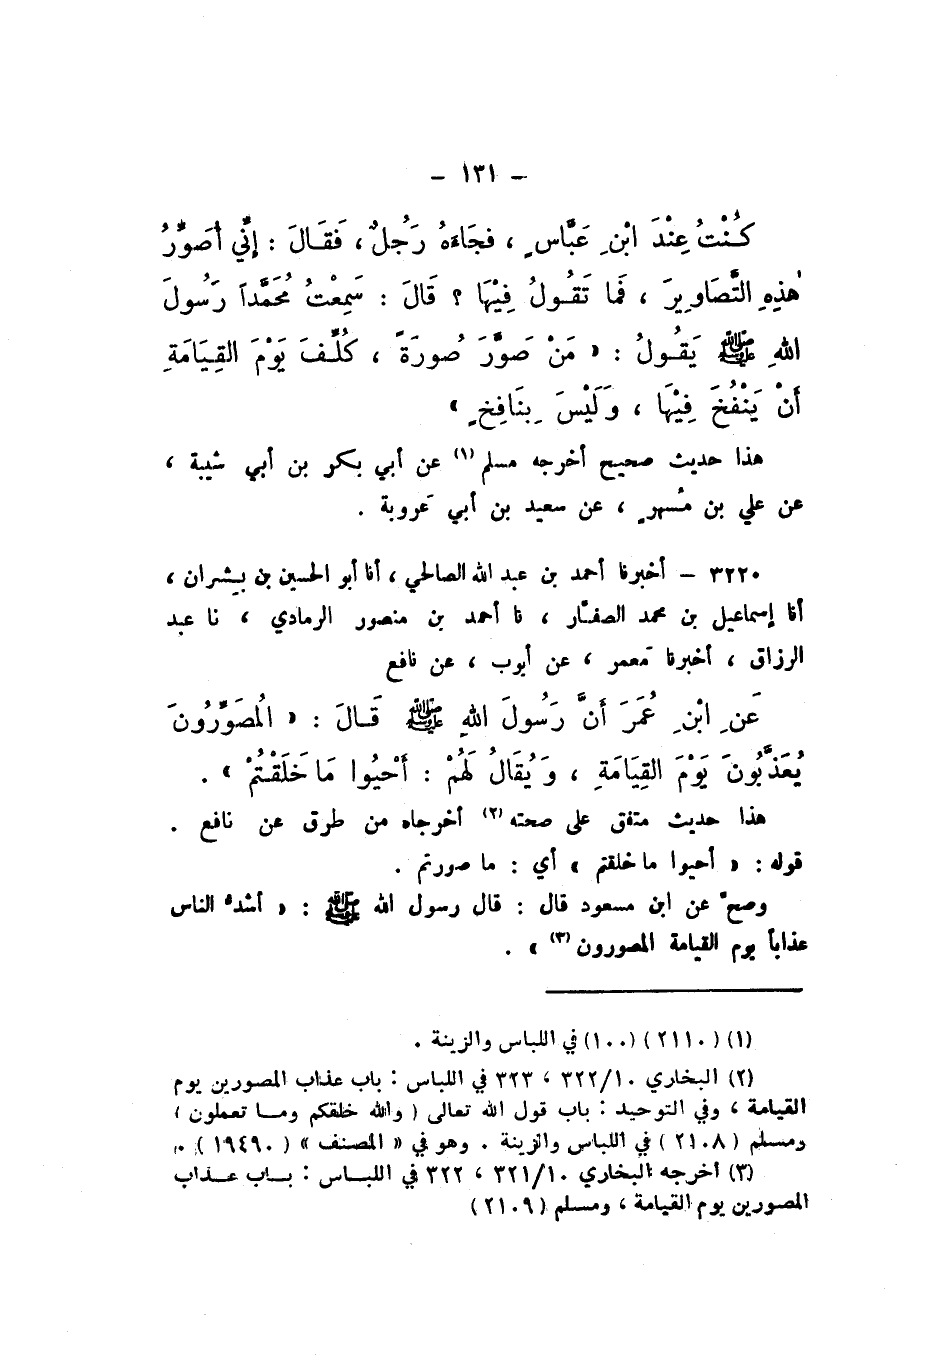 – ١٣١ –
كُنْتُ عِنْدَ ابْنِ عَبَّاسٍ ، فجَاءَهُ رَجُلٌ ، فَقَالَ : إنِّي أُصَوِّرُ
هٰذِهِ التَّصَاوِيرَ ، فَما تَقُولُ فِيْهَا ؟ قَالَ : سَمِعْتُ مُحَمَّداً رَسُولَ
اللهِ ﷺ يَقُولُ : « مَنْ صَوَّرَ صُورَةً ، كُلِّفَ يَوْمَ القِيَامَةِ
أَنْ يَنْفُخَ فِيْهَا ، وَلَيْسَ بِنَافِخٍ »
هذا حديث صحيح أخرجه مسلم (١) عن أبي بكر بن أبي شيبة ،
عن علي بن مُسهرٍ ، عن سعيد بن أبي عَروبة .
٣٢٢٠ – أخبرنا أحمد بن عبد الله الصالحي ، أنا أبو الحسين بن بِشران ،
أنا إسماعيل بن محمد الصفّار ، نا أحمد بن منصور الرمادي ، نا عبد
الرزاق ، أخبرنا مَعمر ، عن أيوب ، عن نافع
عَنِ ابْنِ عُمَرَ أَنَّ رَسُولَ اللهِ ﷺ قَالَ : « المُصَوِّرُونَ
يُعَذَّبُونَ يَوْمَ القِيَامَةِ ، وَيُقَالُ لَهُمْ : أَحْيُوا مَا خَلَقْتُمْ » .
هذا حديث متفق على صحته (٢) أخرجاه من طرق عن نافع .
قوله : « أحيوا ما خلقتم » أي : ما صورتم .
وصحَّ عن ابن مسعود قال : قال رسول الله ﷺ : « أشدُّ الناس
عذاباً يوم القيامة المصورون (٣) » .
(١) (٢١١٠) (١٠٠) في اللباس والزينة .
(٢) البخاري ٣٢٢/١٠ ، ٣٢٣ في اللباس : باب عذاب المصورين يوم
القيامة ، وفي التوحيد : باب قول الله تعالى ( والله خلقكم وما تعملون )
ومسلم (٢١٠٨) في اللباس والزينة . وهو في « المصنف » (١٩٤٩٠) .
(٣) أخرجه البخاري ٣٢١/١٠ ، ٣٢٢ في اللباس : باب عذاب
المصورين يوم القيامة ، ومسلم (٢١٠٩)